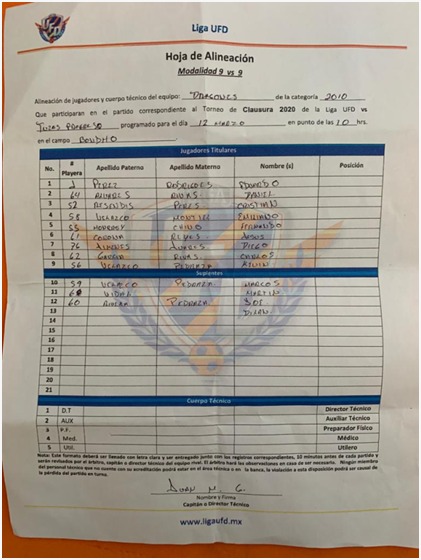 UFD
Liga UFD
Hoja de Alineación
Modalidad 9 vs 9
Alineación de jugadores y cuerpo técnico del equipo: DRAGONES de la categoría 2010
Que participaran en el partido correspondiente al Torneo de Clausura 2020 de la Liga UFD vs
programado para el día 12 MARZO en punto de las 10 hrs.
en el campo
Jugadores Titulares
No. # Playera Apellido Paterno Apellido Materno Nombre (s) Posición
1 1 PEREZ
2 64 RIVAS DANIEL
3 52 CRISTIAN
4 58 VELAZCO MONTIEL EMILIANO
5 55 FERNANDO
6 61 CORONA JESUS
7 76 DIEGO
8 62 GARCIA RIVAS CARLOS
9 56 VELAZCO PEDRAZA
Suplentes
10 59 PEDRAZA MARCOS
11 MARTIN
12 60 PEDRAZA
13
14
15
16
17
18
19
20
21
Cuerpo Técnico
1 D.T Director Técnico
2 AUX Auxiliar Técnico
3 P.F. Preparador Físico
4 Med. Médico
5 Util. Utilero
Nota: Este formato deberá ser llenado con letra clara y ser entregado junto con los registros correspondientes, 10 minutos antes de cada partido y
serán revisados por el árbitro, capitán o director técnico del equipo rival. El árbitro hará las observaciones en caso de ser necesario. Ningún miembro
del personal técnico que no cuente con su acreditación podrá estar en el área técnica o en la banca, la violación a esta disposición podrá ser causal de
la pérdida del partido en turno.
JUAN M. G.
Nombre y Firma
Capitán o Director Técnico
www.ligaufd.mx